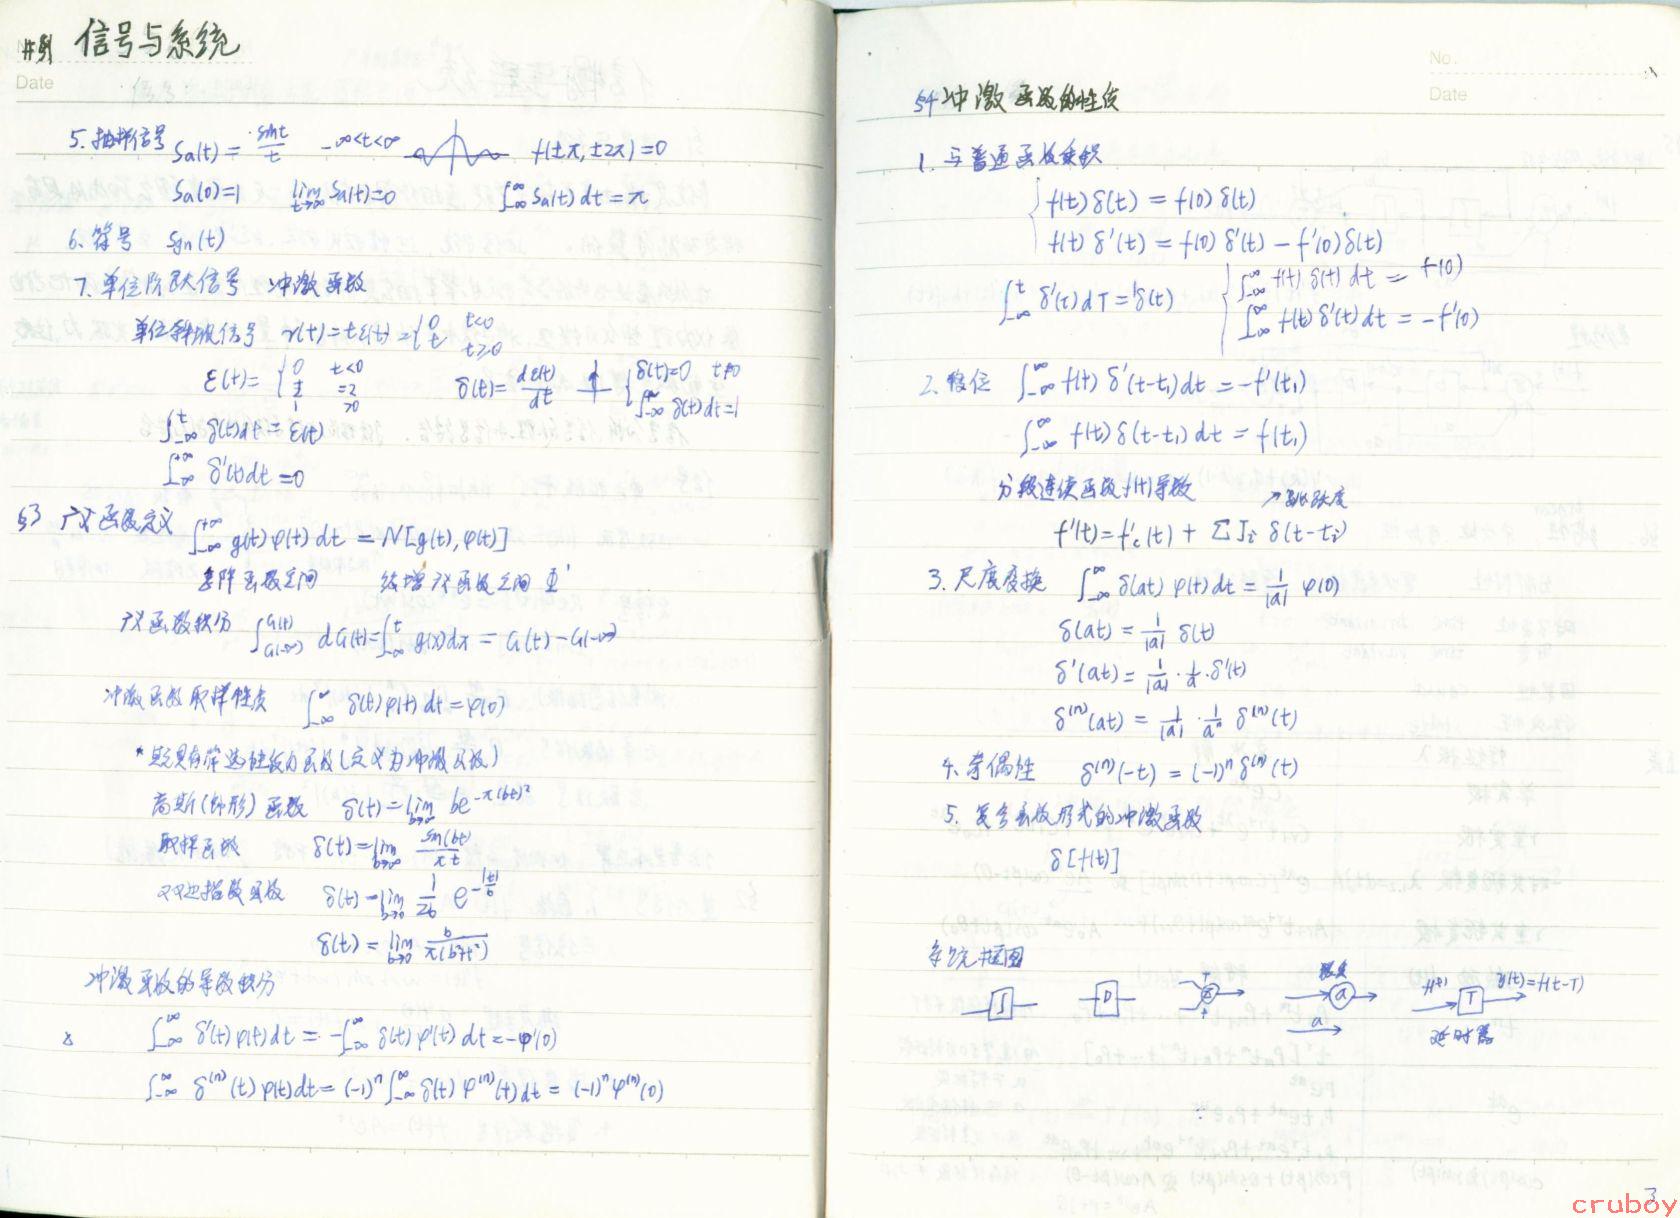 信号与系统
Date
5. 抽样信号 Sa(t) = sint/t -∞<t<∞ f(±π, ±2π)=0
Sa(0)=1 lim t→∞ Sa(t)=0 ∫_{-∞}^{∞} Sa(t) dt = π
6. 符号 Sgn(t)
7. 单位阶跃信号 冲激函数
单位斜坡信号 r(t) = tε(t) = { 0 t<0
t t≥0
ε(t) = { 0 t<0 δ(t) = dε(t)/dt { δ(t)=0 t≠0
1 >0 ∫_{-∞}^{+∞} δ(t)dt=1
∫_{-∞}^{t} δ(t)dt = ε(t)
∫_{-∞}^{+∞} δ'(t)dt = 0
§3 广义函数定义 ∫_{-∞}^{+∞} g(t) φ(t) dt = N[g(t), φ(t)]
急降函数空间 缓增广义函数空间 Φ'
广义函数积分 ∫_{G(-∞)}^{G(t)} dG(t) = ∫_{-∞}^{t} g(x)dx = G(t) - G(-∞)
冲激函数取样性质 ∫_{-∞}^{∞} δ(t) φ(t) dt = φ(0)
* 凡具有筛选性质的函数(定义为冲激函数)
高斯(钟形)函数 δ(t) = lim b→∞ be^{-π(bt)²}
取样函数 δ(t) = lim b→∞ sin(bt)/πt
双边指数函数 δ(t) = lim b→0 1/2b e^{-|t|/b}
δ(t) = lim b→0 b/π(b²+t²)
冲激函数的导数积分
∫_{-∞}^{∞} δ'(t) φ(t) dt = -∫_{-∞}^{∞} δ(t) φ'(t) dt = -φ'(0)
∫_{-∞}^{∞} δ^{(n)}(t) φ(t) dt = (-1)^n ∫_{-∞}^{∞} δ(t) φ^{(n)}(t) dt = (-1)^n φ^{(n)}(0)
No.
Date
§4 冲激函数的性质
1. 与普通函数乘积
{ f(t) δ(t) = f(0) δ(t)
f(t) δ'(t) = f(0) δ'(t) - f'(0) δ(t)
∫_{-∞}^{t} δ'(t) dT = δ(t) { ∫_{-∞}^{∞} f(t) δ(t) dt = f(0)
∫_{-∞}^{∞} f(t) δ'(t) dt = -f'(0)
2. 移位 ∫_{-∞}^{∞} f(t) δ'(t-t₁) dt = -f'(t₁)
∫_{-∞}^{∞} f(t) δ(t-t₁) dt = f(t₁)
分段连续函数f(t)导数 ↗跳跃度
f'(t) = f'c(t) + ΣJi δ(t-ti)
3. 尺度变换 ∫_{-∞}^{∞} δ(at) φ(t) dt = 1/|a| φ(0)
δ(at) = 1/|a| δ(t)
δ'(at) = 1/|a| · 1/a · δ'(t)
δ^{(n)}(at) = 1/|a| · 1/a^n δ^{(n)}(t)
4. 奇偶性 δ^{(n)}(-t) = (-1)^n δ^{(n)}(t)
5. 复合函数形式的冲激函数
δ[f(t)]
系统框图
∫ D Σ + + a a f(t) T y(t)=f(t-T)
延时器
3
cruboy